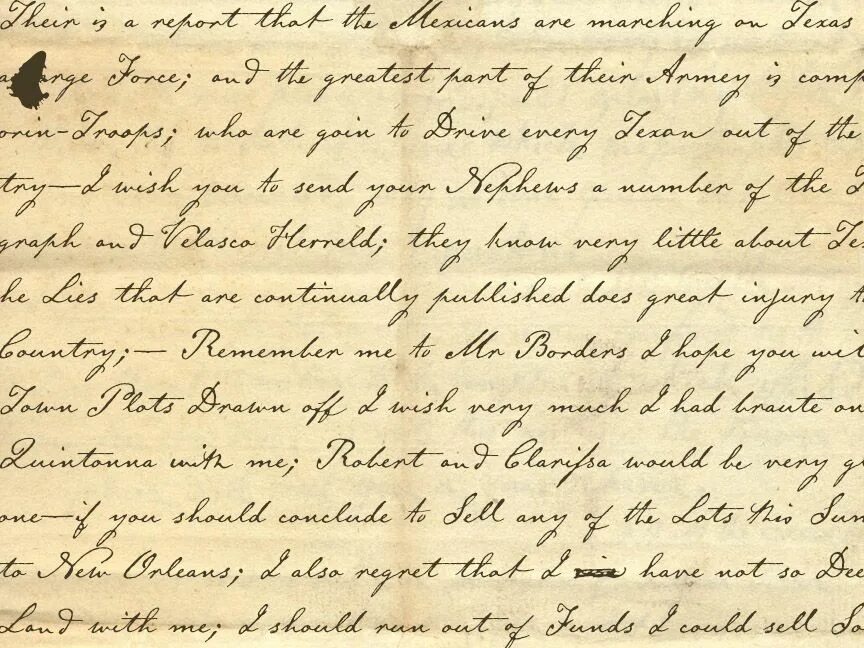 Their is a report that the Mexicans are marching on Texas
arge Force; and the greatest part of their Armey is comp
orin-Troops; who are goin to Drive every Texan out of the
try—I wish you to send your Nephews a number of the T
graph and Velasco Herreld; they know very little about Tex
he Lies that are continually published does great injury t
Country;— Remember me to Mr Borders I hope you wil
Town Plots Drawn off I wish very much I had braute on
Quintanna with me; Robert and Clariſsa would be very g
one—if you should conclude to Sell any of the Lots this Sum
to New Orleans; I also regret that I have not so Dee
Land with me; I should run out of Funds I could sell So